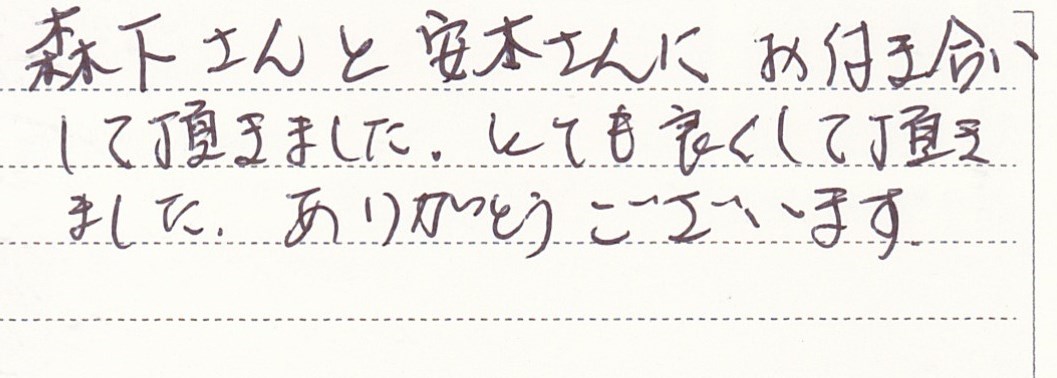 森下さんと安本さんにお付き合い
して頂きました。とても良くして頂き
ました。ありがとうございます。